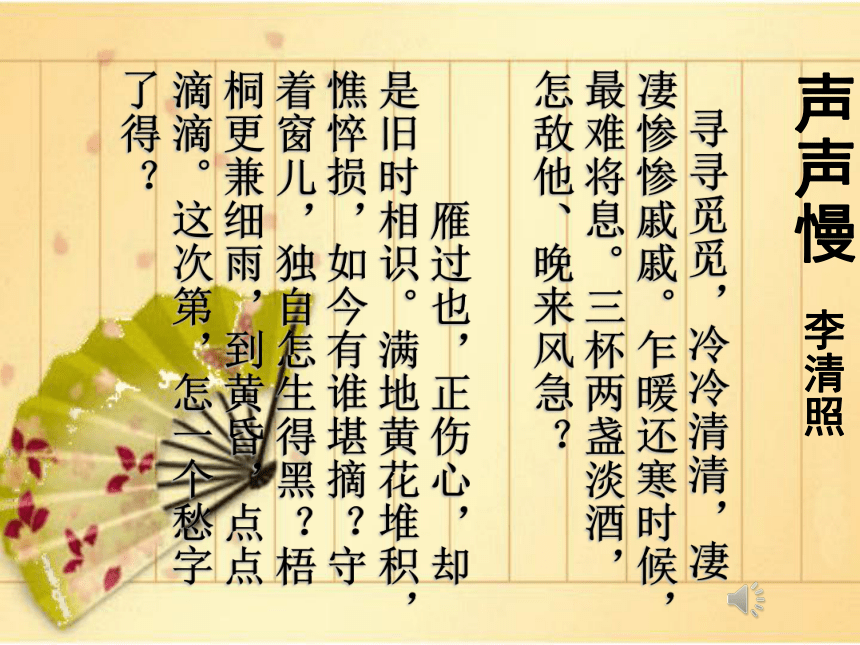 声声慢 李清照
寻寻觅觅，冷冷清清，凄
凄惨惨戚戚。乍暖还寒时候，
最难将息。三杯两盏淡酒，
怎敌他、晚来风急？
雁过也，正伤心，却
是旧时相识。满地黄花堆积，
憔悴损，如今有谁堪摘？守
着窗儿，独自怎生得黑？梧
桐更兼细雨，到黄昏，点点
滴滴。这次第，怎一个愁字
了得？